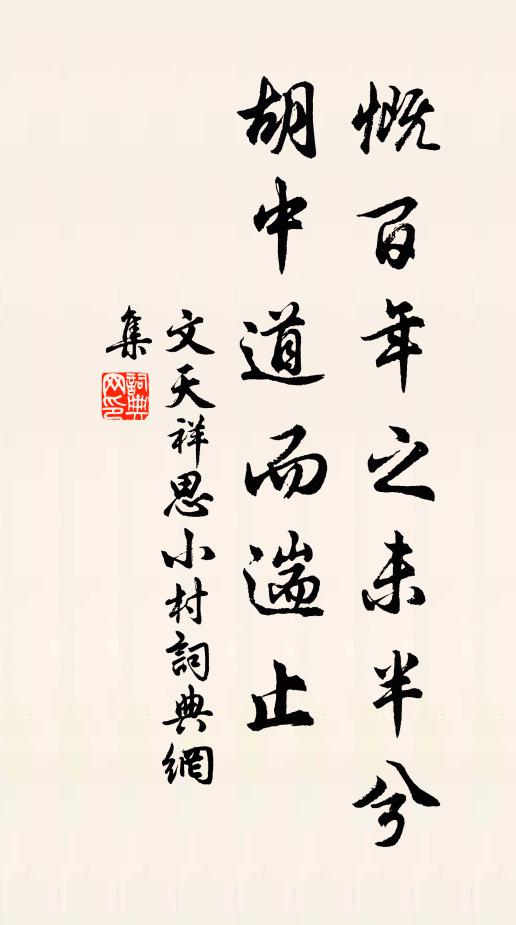 慨百年之未半兮
胡中道而遄止
文天祥思小村詞典網
集
詞典
网印